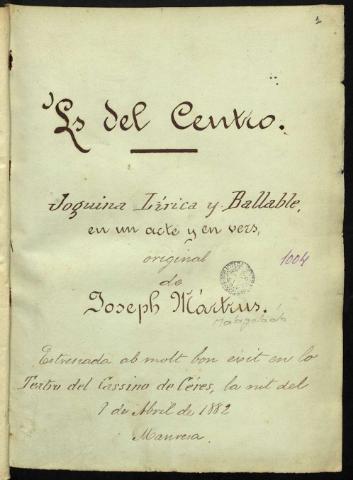 1
Ls del Centro.
Joguina Lírica y Ballable,
en un acte y en vers,
original
1004
de
Joseph Mártrus.
Estrenada ab molt bon èxit en lo
Teatro del Cassino de Ceres, la nit del
1 de Abril de 1882
Manresa.